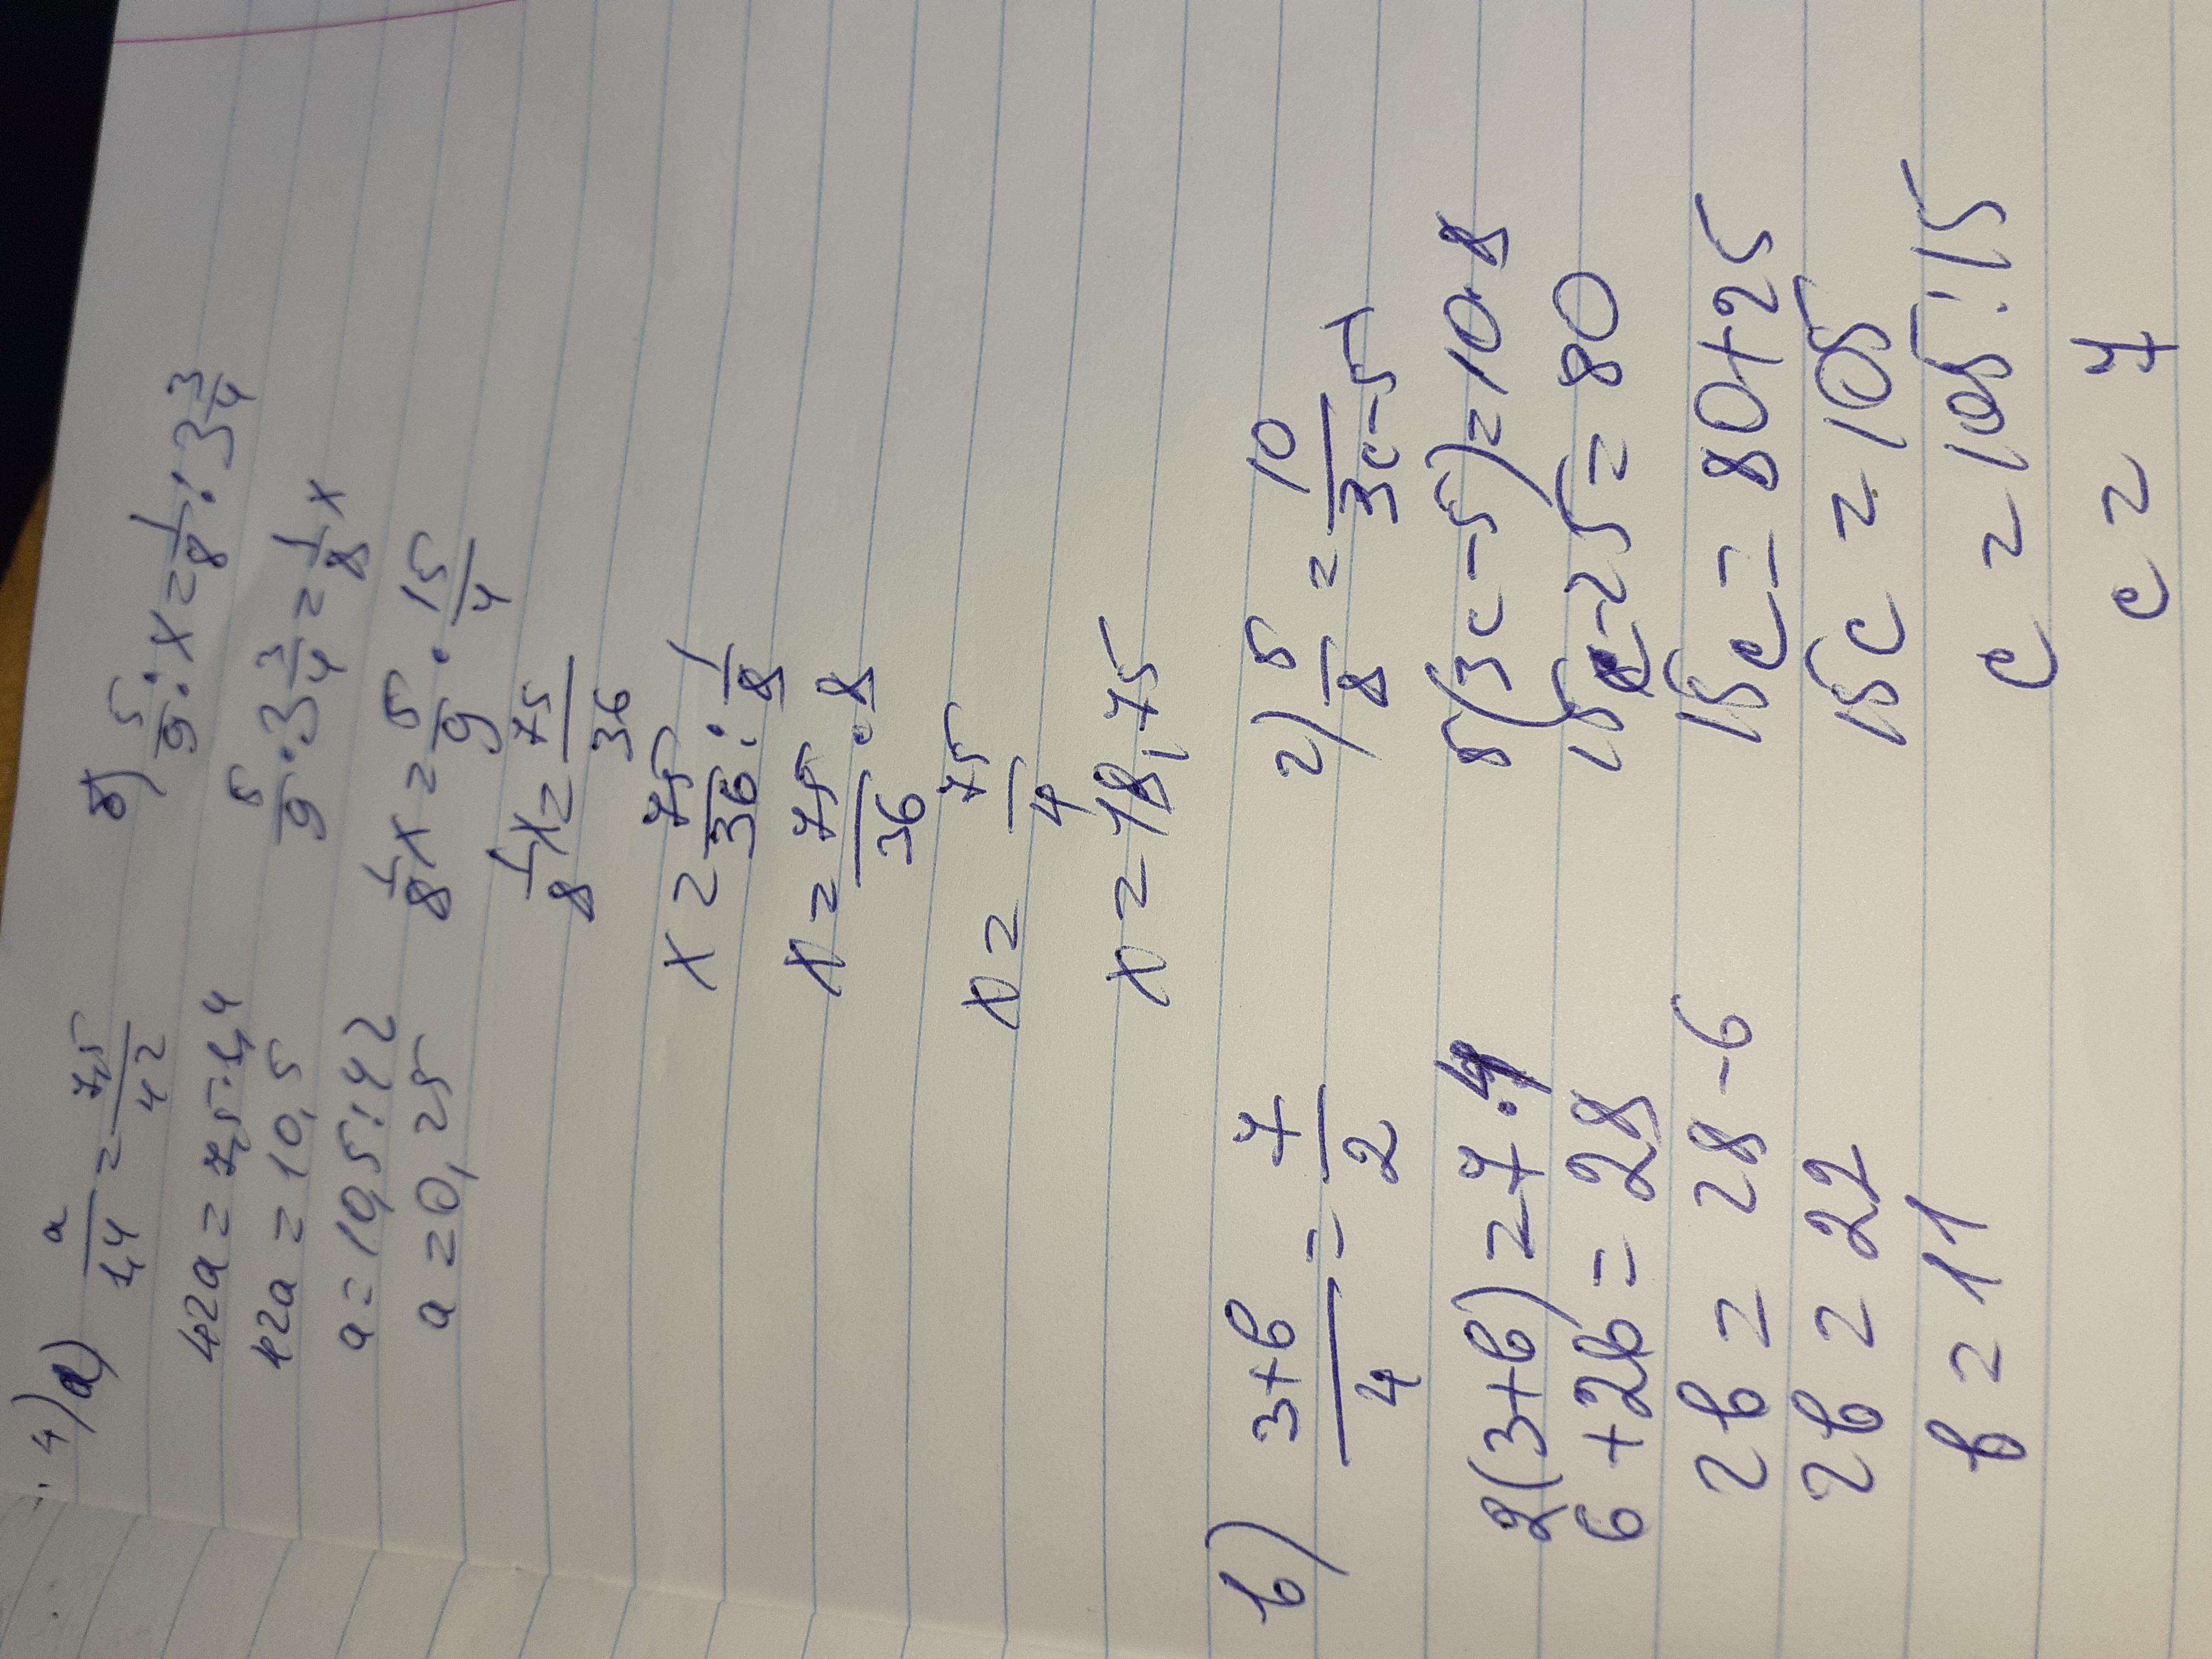 4) а) a/1,4 = 7,5/42
42a = 7,5 · 1,4
42a = 10,5
a = 10,5 : 42
a = 0,25
б) 5/9 : x = 1/8 : 3 3/4
5/9 · 3 3/4 = 1/8 x
1/8 x = 5/9 · 15/4
1/8 x = 75/36
x = 75/36 : 1/8
x = 75/36 · 8
x = 75/4
x = 18,75
в) 3+b/4 = 7/2
2(3+b) = 7 · 4
6 + 2b = 28
2b = 28 - 6
2b = 22
b = 11
г) 5/8 = 10/3c-5
5(3c-5) = 10·8
15c-25 = 80
15c = 80+25
15c = 105
c = 105:15
c = 7